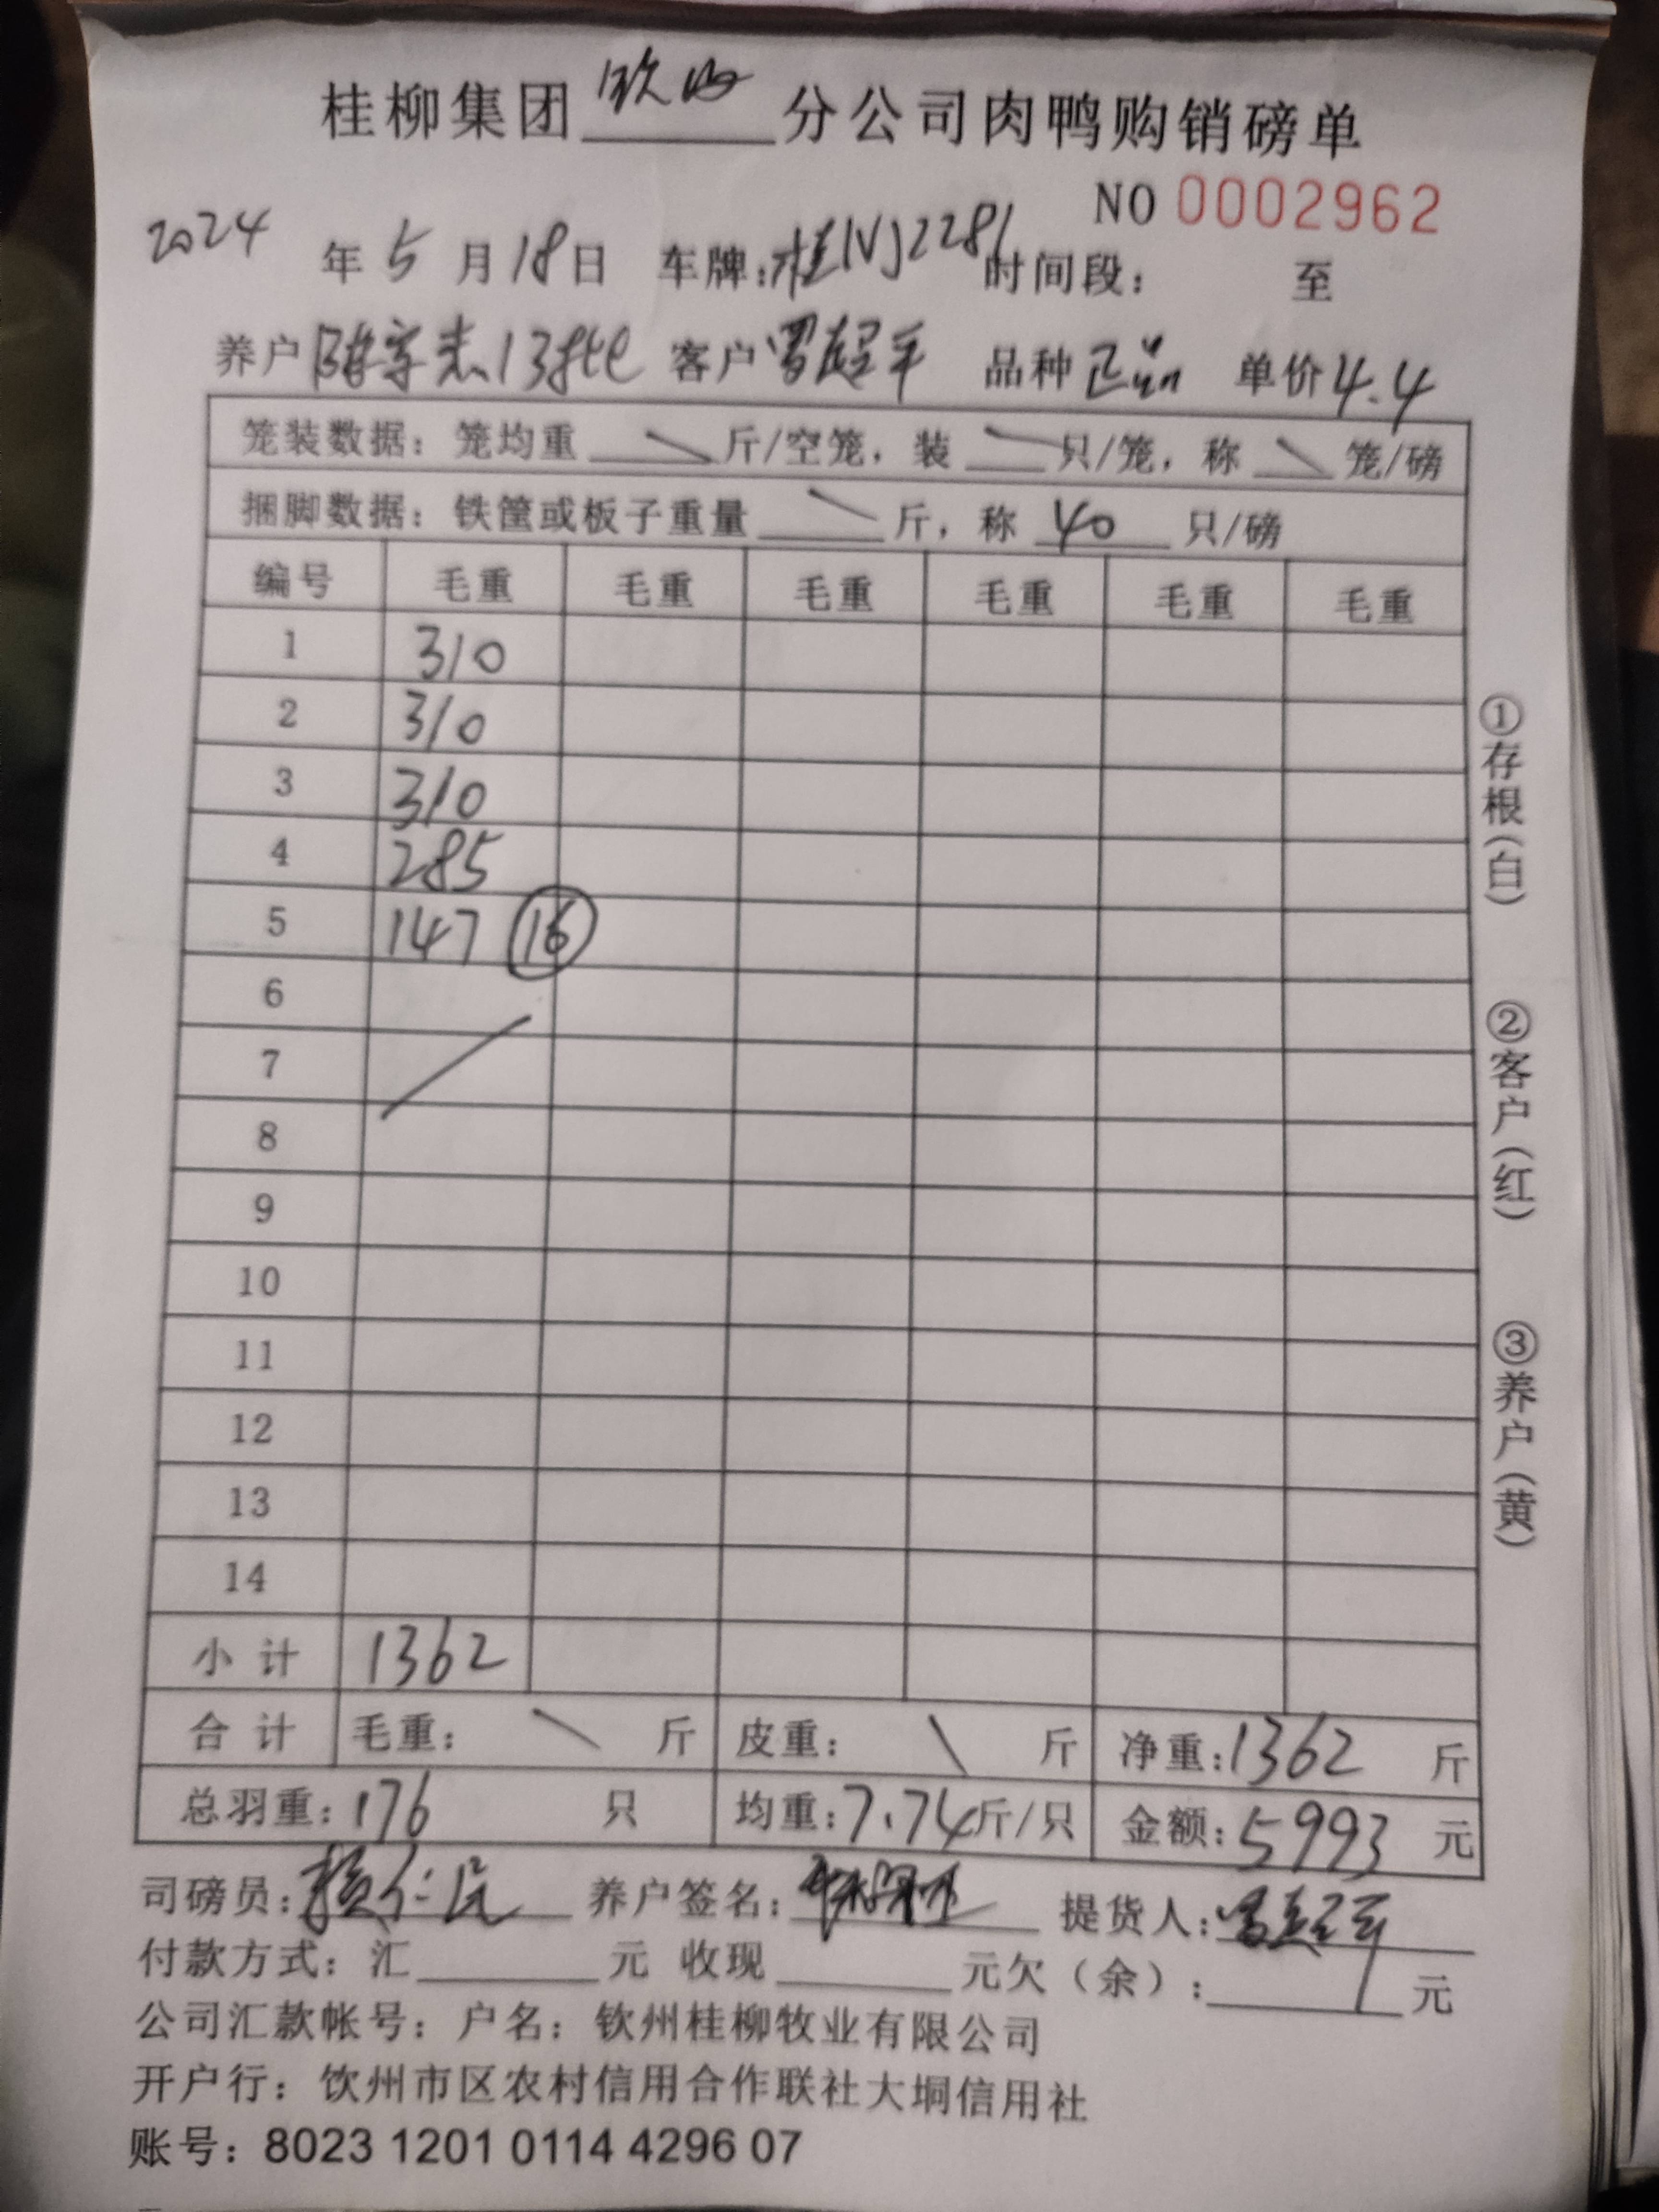 桂柳集团 钦州 分公司肉鸭购销磅单
NO 0002962
2024 年 5 月 18 日 车牌:桂NJ2281 时间段: 至
养户 陈宗志13批 客户 罗超平 品种 正品 单价 4.4
笼装数据: 笼均重 \ 斤/空笼, 装 \ 只/笼, 称 \ 笼/磅
捆脚数据: 铁筐或板子重量 \ 斤, 称 40 只/磅
编号 毛重 毛重 毛重 毛重 毛重 毛重
1 310
2 310
3 310
4 285
5 147 ⑯
6
7
8
9
10
11
12
13
14
小计 1362
合计 毛重: \ 斤 皮重: \ 斤 净重:1362 斤
总羽重:176 只 均重:7.74斤/只 金额:5993 元
司磅员: 养户签名: 提货人:罗超平
付款方式: 汇 元 收现 元欠(余): 元
公司汇款帐号: 户名: 钦州桂柳牧业有限公司
开户行: 钦州市区农村信用合作联社大垌信用社
账号: 8023 1201 0114 4296 07
①存根(白)
②客户(红)
③养户(黄)